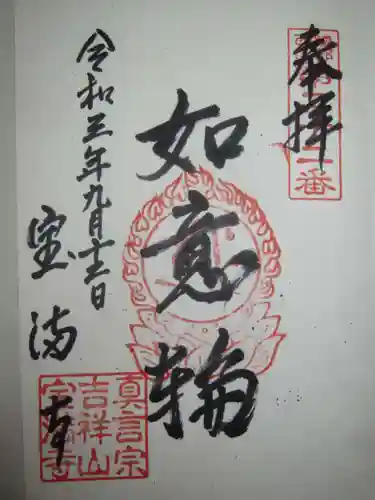 奉拝
二番
如意輪
令和三年九月十二日
宝満寺
真言宗
吉祥山
宝満寺